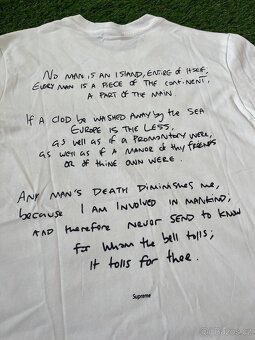 No man is an island, entire of itself,
Every man is a piece of the continent,
A part of the main.
If a clod be washed away by the sea
Europe is the less,
as well as if a promontory were,
as well as if a manor of thy friends
or of thine own were.
Any man's death diminishes me,
because I am involved in mankind;
and therefore never send to know
for whom the bell tolls;
it tolls for thee.
Supreme